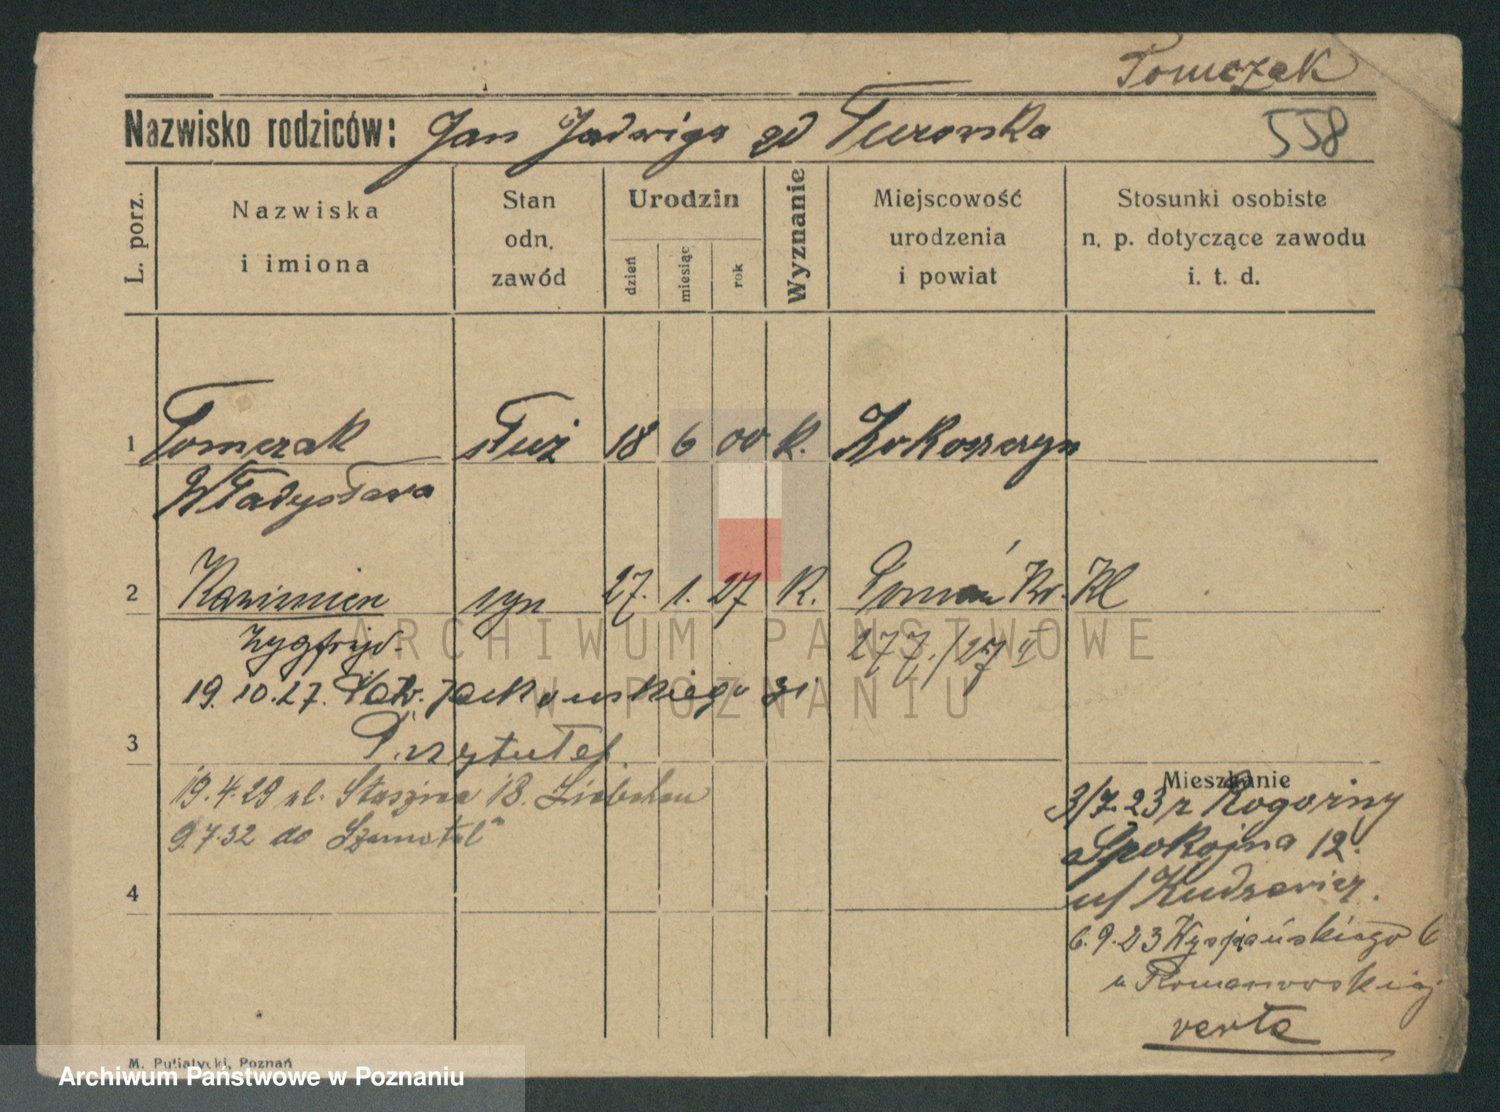 Tomczak
Nazwisko rodziców: Jan Jadwiga zd Turowska
558
L. porz.
Nazwiska
i imiona
Stan
odn.
zawód
Urodzin
dzień
miesiąc
rok
Wyznanie
Miejscowość
urodzenia
i powiat
Stosunki osobiste
n. p. dotyczące zawodu
i. t. d.
1 Tomczak służ 18 6 00 k.
Władysława
2 Kazimierz syn 27. 1. 27 K. Kl
Zygfryd
277./27
19.10.27. Jackowskiego 31
3 Przytułek
19.4.29 ul. Staszica 18.
9.7.32 do Szamotuł
4
Mieszkanie
3/7.23 z Rogoźny
Spokojna 12.
6.9.23 Wyspiańskiego 6
u Romanowskiej
verte
M. Putiatycki, Poznań
ARCHIWUM PAŃSTWOWE
W POZNANIU
Archiwum Państwowe w Poznaniu